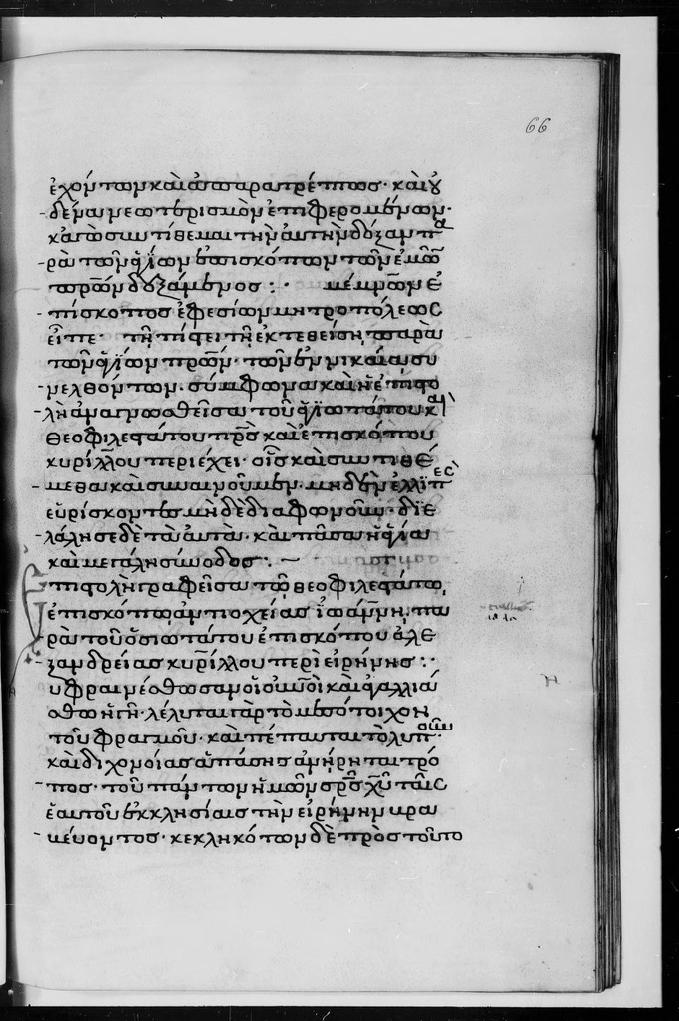 66
ἐχόντων καὶ ἀπαρατρέπτως· καὶ οὐ
δένα νεωτερισμὸν ἐπιφερομένων·
κἀγὼ συντίθεμαι τὴν αὐτὴν δόξαν πα
ρὰ τῶν ἁγίων ἐπισκόπων τῶν ἐμῶν
πρῶν δοξάμενος :· μέμνων ἐ
πίσκοπος ἐφεσίων μητροπόλεως
εἶπε· τῇ πίστει τῇ ἐκτεθείσῃ παρὰ
τῶν ἁγίων πρῶν· τῶν ἐν νικαίᾳ συ
νελθόντων· σύμφωνα καὶ ἡ ἐπιστο
λὴ ἀναγνωσθεῖσα τοῦ ἁγιωτάτου καὶ
θεοφιλεστάτου πρς καὶ ἐπισκόπου
κυρίλλου περιέχει· οἷς καὶ συντιθέ
μεθα καὶ συναινοῦμεν· μηδὲν ἐλλιπὲς
εὑρίσκοντες μὴ δὲ διαφωνοῦν· διε
λάλησε δὲ τὰ αὐτὰ· καὶ πᾶσα ἡ ἁγία
καὶ μεγάλη σύνοδος :· ~
Ἐπιστολὴ γραφεῖσα τῷ θεοφιλεστάτῳ
ἐπισκόπῳ ἀντιοχείας ἰωάννῃ, πα
ρὰ τοῦ ὁσιωτάτου ἐπισκόπου ἀλε
ξανδρείας κυρίλλου περὶ εἰρήνης :·
υφραινέσθωσαν οἱ οὐνοὶ καὶ ἀγαλλιά
σθω ἡ γῆ· λέλυται γὰρ τὸ μεσότοιχον
τοῦ φραγμοῦ· καὶ πέπαυται τὸ λυποῦν
καὶ διχονοίας ἁπάσης ἀνῄρηται τρό
πος· τοῦ πάντων ἡμῶν σρς χῦ ταῖς
ἑαυτοῦ ἐκκλησίαις τὴν εἰρήνην βρα
βεύοντος· κεκληκότων δὲ πρὸς τοῦτο